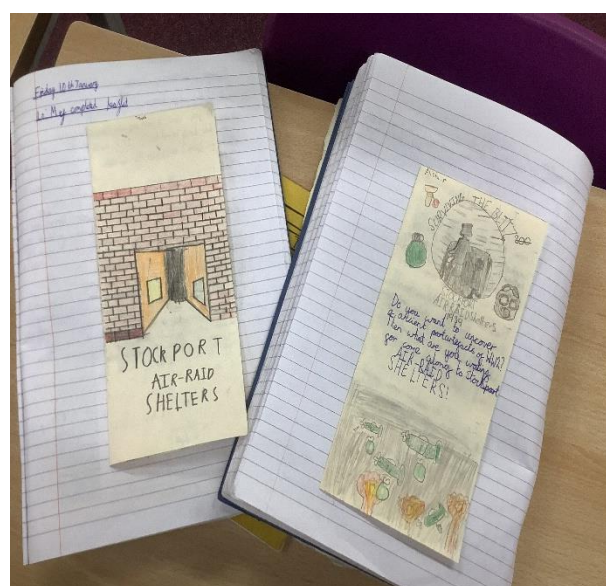 Friday 10th January
Lo My completed leaflet
STOCKPORT
AIR-RAID
SHELTERS
SURVIVING THE BLITZ
AIR RAID SHELTERS
Do you want to uncover
ancient of WW2?
Then what are you waiting
for come along to Stockport
AIR-RAID
SHELTERS!